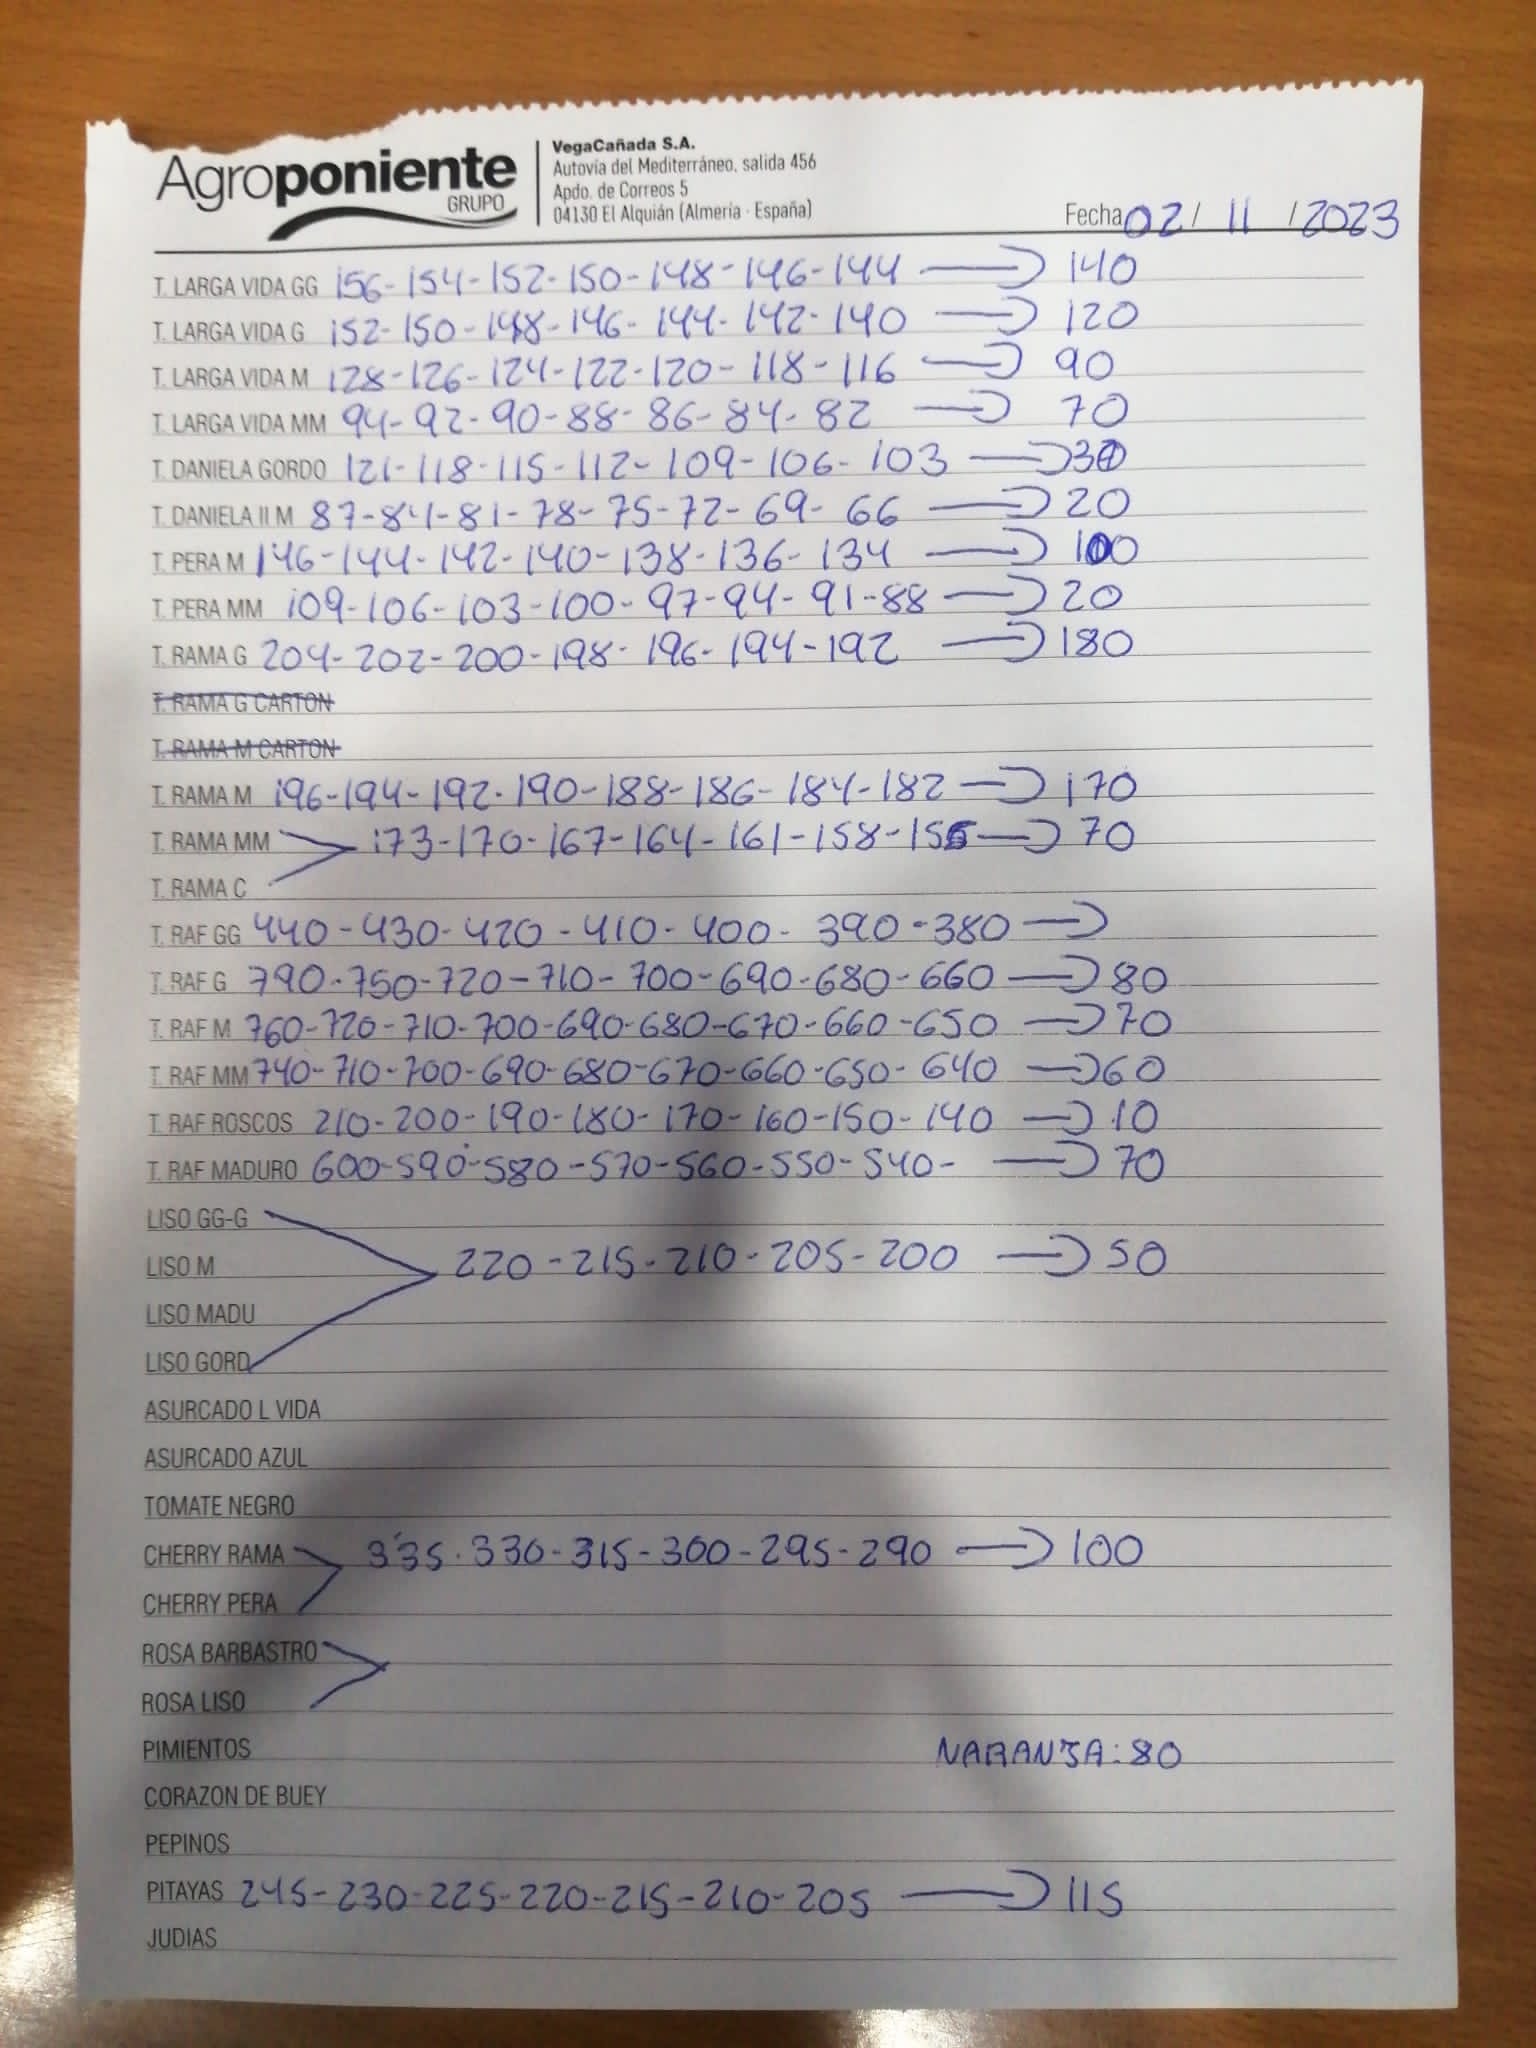 Agroponiente
GRUPO
VegaCañada S.A.
Autovía del Mediterráneo, salida 456
Apdo. de Correos 5
04130 El Alquián (Almería · España)
Fecha 02/ 11 /2023
T. LARGA VIDA GG 156-154-152-150-148-146-144 → 140
T. LARGA VIDA G 152-150-148-146-144-142-140 → 120
T. LARGA VIDA M 128-126-124-122-120-118-116 → 90
T. LARGA VIDA MM 94-92-90-88-86-84-82 → 70
T. DANIELA GORDO 121-118-115-112-109-106-103 → 30
T. DANIELA II M 87-84-81-78-75-72-69-66 → 20
T. PERA M 146-144-142-140-138-136-134 → 100
T. PERA MM 109-106-103-100-97-94-91-88 → 20
T. RAMA G 204-202-200-198-196-194-192 → 180
T. RAMA G CARTON
T. RAMA M CARTON
T. RAMA M 196-194-192-190-188-186-184-182 → 170
T. RAMA MM 173-170-167-164-161-158-155 → 70
T. RAMA C
T. RAF GG 440-430-420-410-400-390-380 →
T. RAF G 790-750-720-710-700-690-680-660 → 80
T. RAF M 760-720-710-700-690-680-670-660-650 → 70
T. RAF MM 740-710-700-690-680-670-660-650-640 → 60
T. RAF ROSCOS 210-200-190-180-170-160-150-140 → 10
T. RAF MADURO 600-590-580-570-560-550-540- → 70
LISO GG-G
LISO M 220-215-210-205-200 → 50
LISO MADU
LISO GORD
ASURCADO L VIDA
ASURCADO AZUL
TOMATE NEGRO
CHERRY RAMA 335-330-315-300-295-290 → 100
CHERRY PERA
ROSA BARBASTRO
ROSA LISO
PIMIENTOS NARANJA: 80
CORAZON DE BUEY
PEPINOS
PITAYAS 245-230-225-220-215-210-205 → 115
JUDIAS